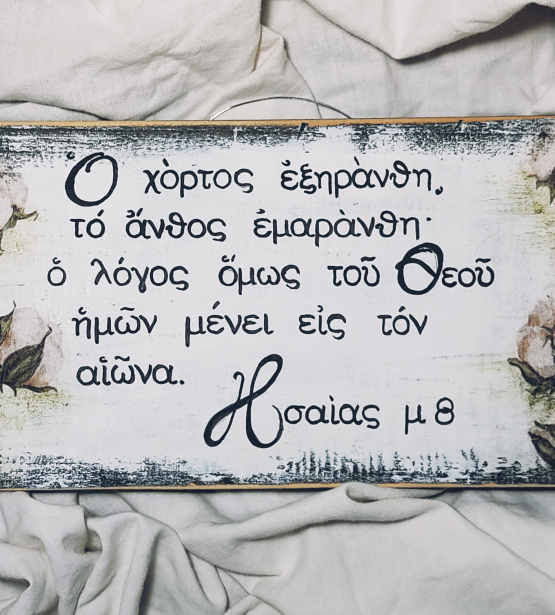 Ὁ χὸρτος ἐξηρὰνθη,
τό ἄνθος ἐμαρὰνθη·
ὁ λόγος ὅμως τοῦ Θεοῦ
ἡμῶν μένει εἰς τόν
αἰῶνα.
Ησαὶας μ 8